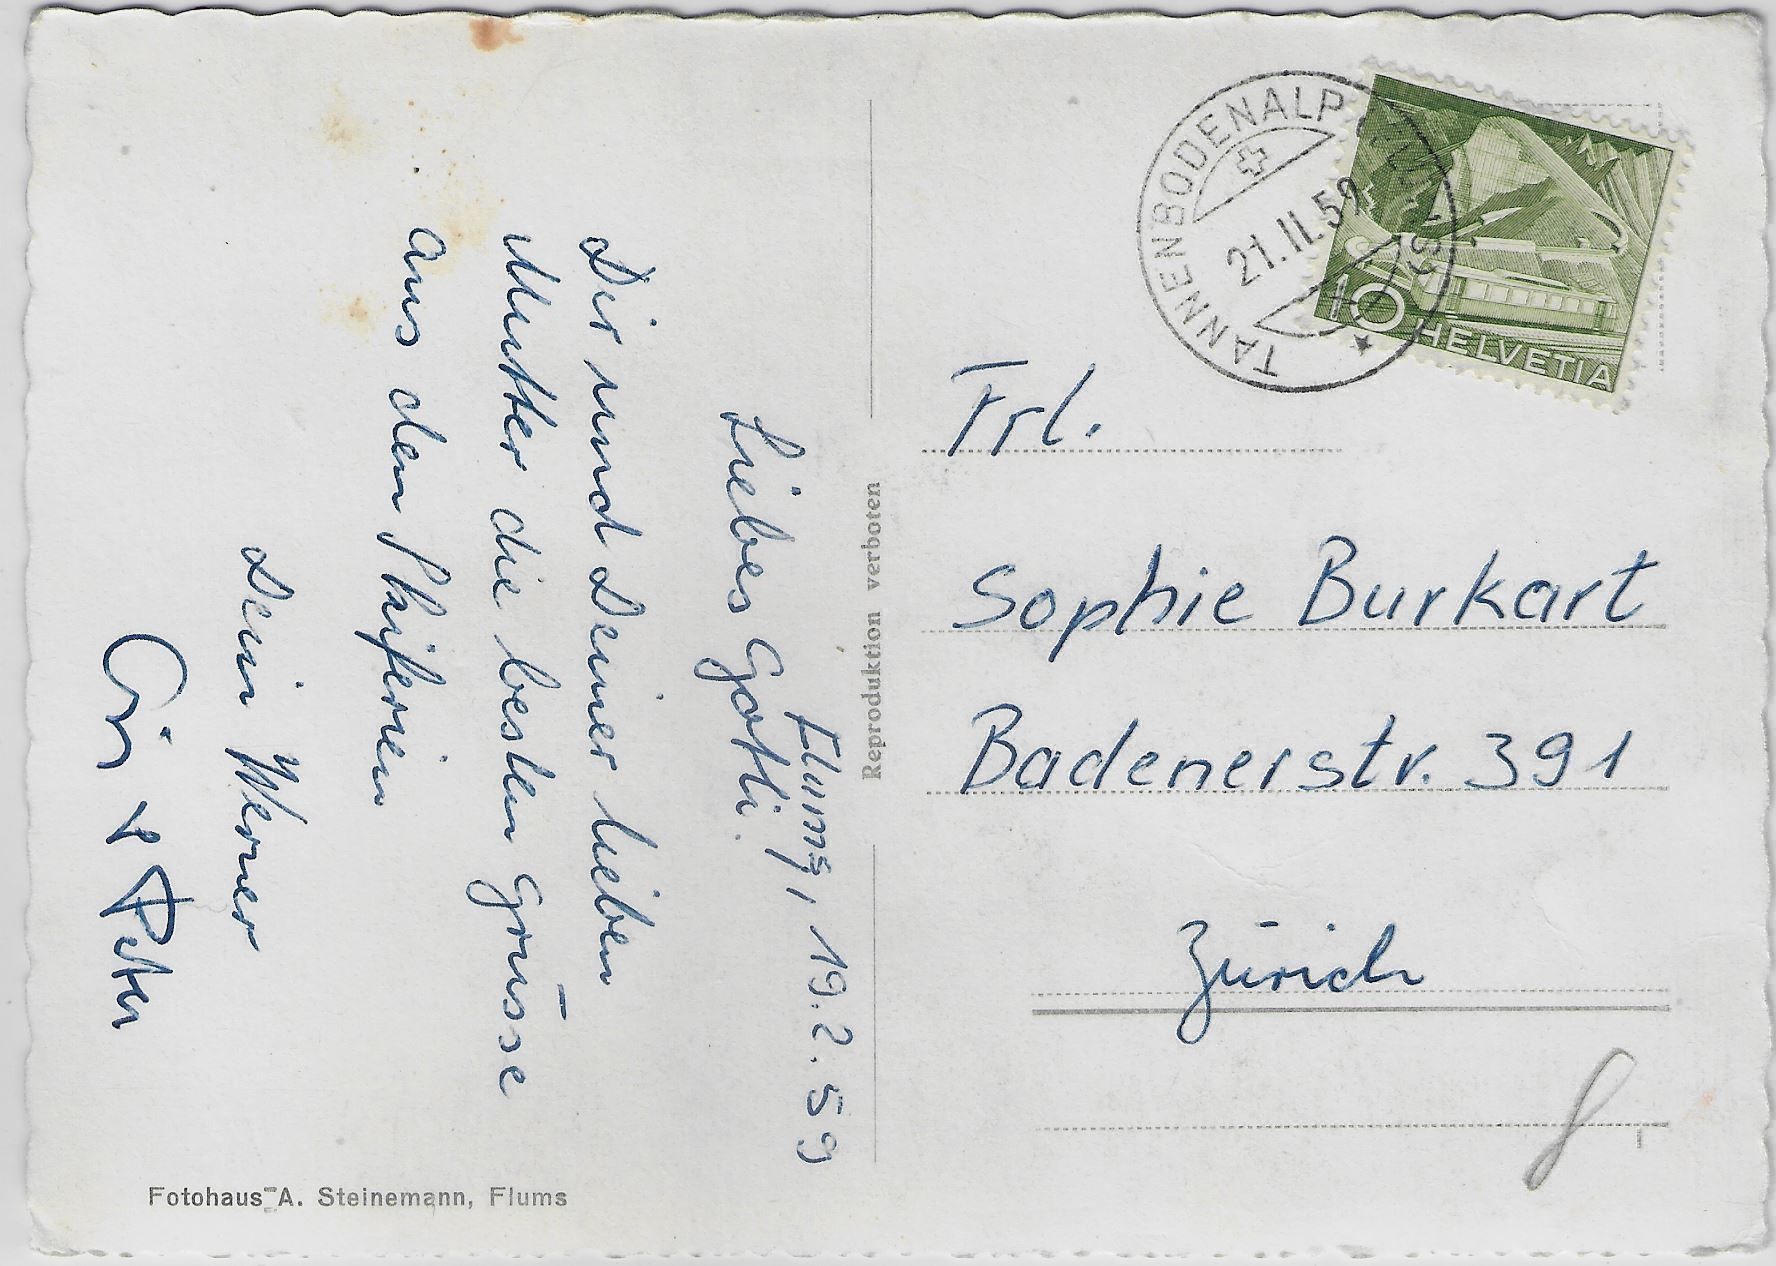 Flums, 19.2.59
Liebes Gotti.
Dir und Deiner lieben
Mutter die besten Grüsse
aus den Skiferien
Dein Werner
& Peter
Fotohaus A. Steinemann, Flums
Reproduktion verboten
TANNENBODENALP (FLUMS)
21.II.59
10 HELVETIA
Frl.
Sophie Burkart
Badenerstr. 391
Zürich